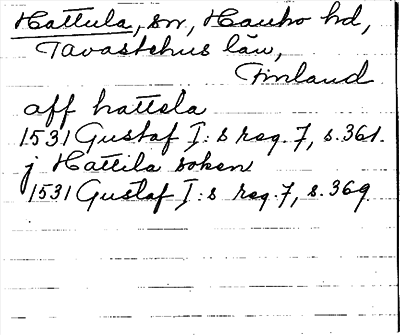 Hattula, sn, Hauho hd,
Tavastehus län,
Finland
aff hattela
1531 Gustaf I:s reg. 7, s. 361.
j Hattila soken
1531 Gustaf I:s reg. 7, s. 369.